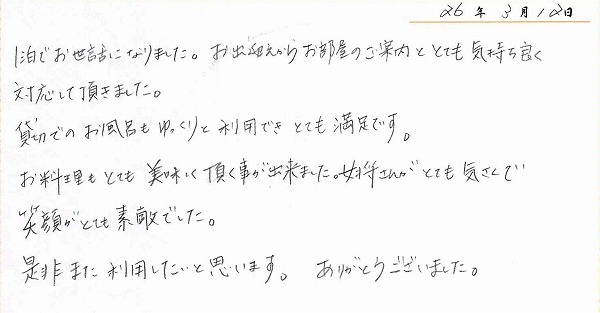 26年3月12日
1泊でお世話になりました。お出迎えからお部屋のご案内ととても気持ち良く
対応して頂きました。
貸切でのお風呂もゆっくりと利用できとても満足です。
お料理もとても美味しく頂く事が出来ました。女将さんがとても気さくで
笑顔がとても素敵でした。
是非また利用したいと思います。 ありがとうございました。